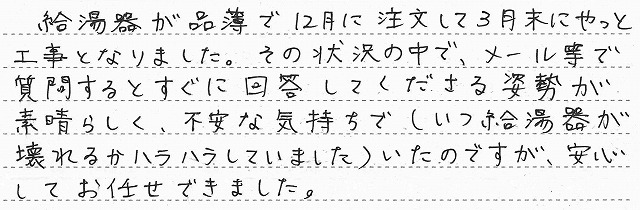 給湯器が品薄で12月に注文して3月末にやっと
工事となりました。その状況の中で、メール等で
質問するとすぐに回答してくださる姿勢が
素晴らしく、不安な気持ちで(いつ給湯器が
壊れるかハラハラしていました)いたのですが、安心
してお任せできました。